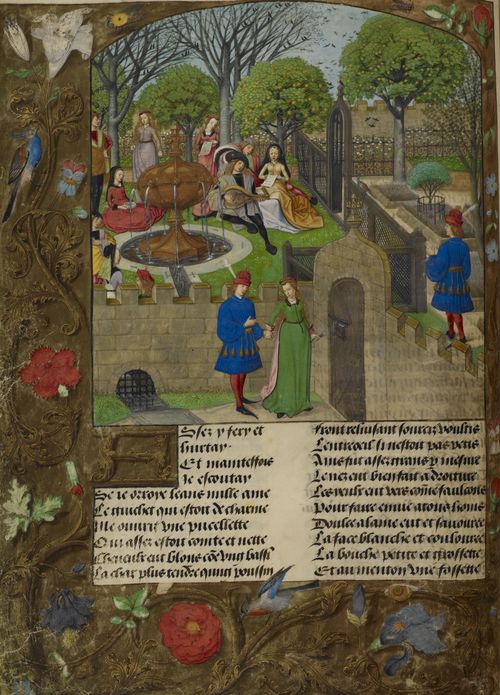 Assez y fery et
hurtay
Et maintesfois
je escoutay
Se je orroye leans nulle ame
Le guichet qui estoit de charme
Me ouvrit une pucellette
Qui assez estoit cointe et nette
Cheveulx eut blons cõe ung bassi
La char plus tendre qung poussin
Front reluisant sourcilz voultis
Lentroeil si nestoit pas petis
Ains fut assez grans p mesure
Le nez eut bien fait a droiture
Les yeulx eut vers cõe faulcons
Pour faire envie a tous homs
Doulce alaine eut et savouree
La face blanche et coulouree
La bouche petite et grossette
Et au menton une fossette